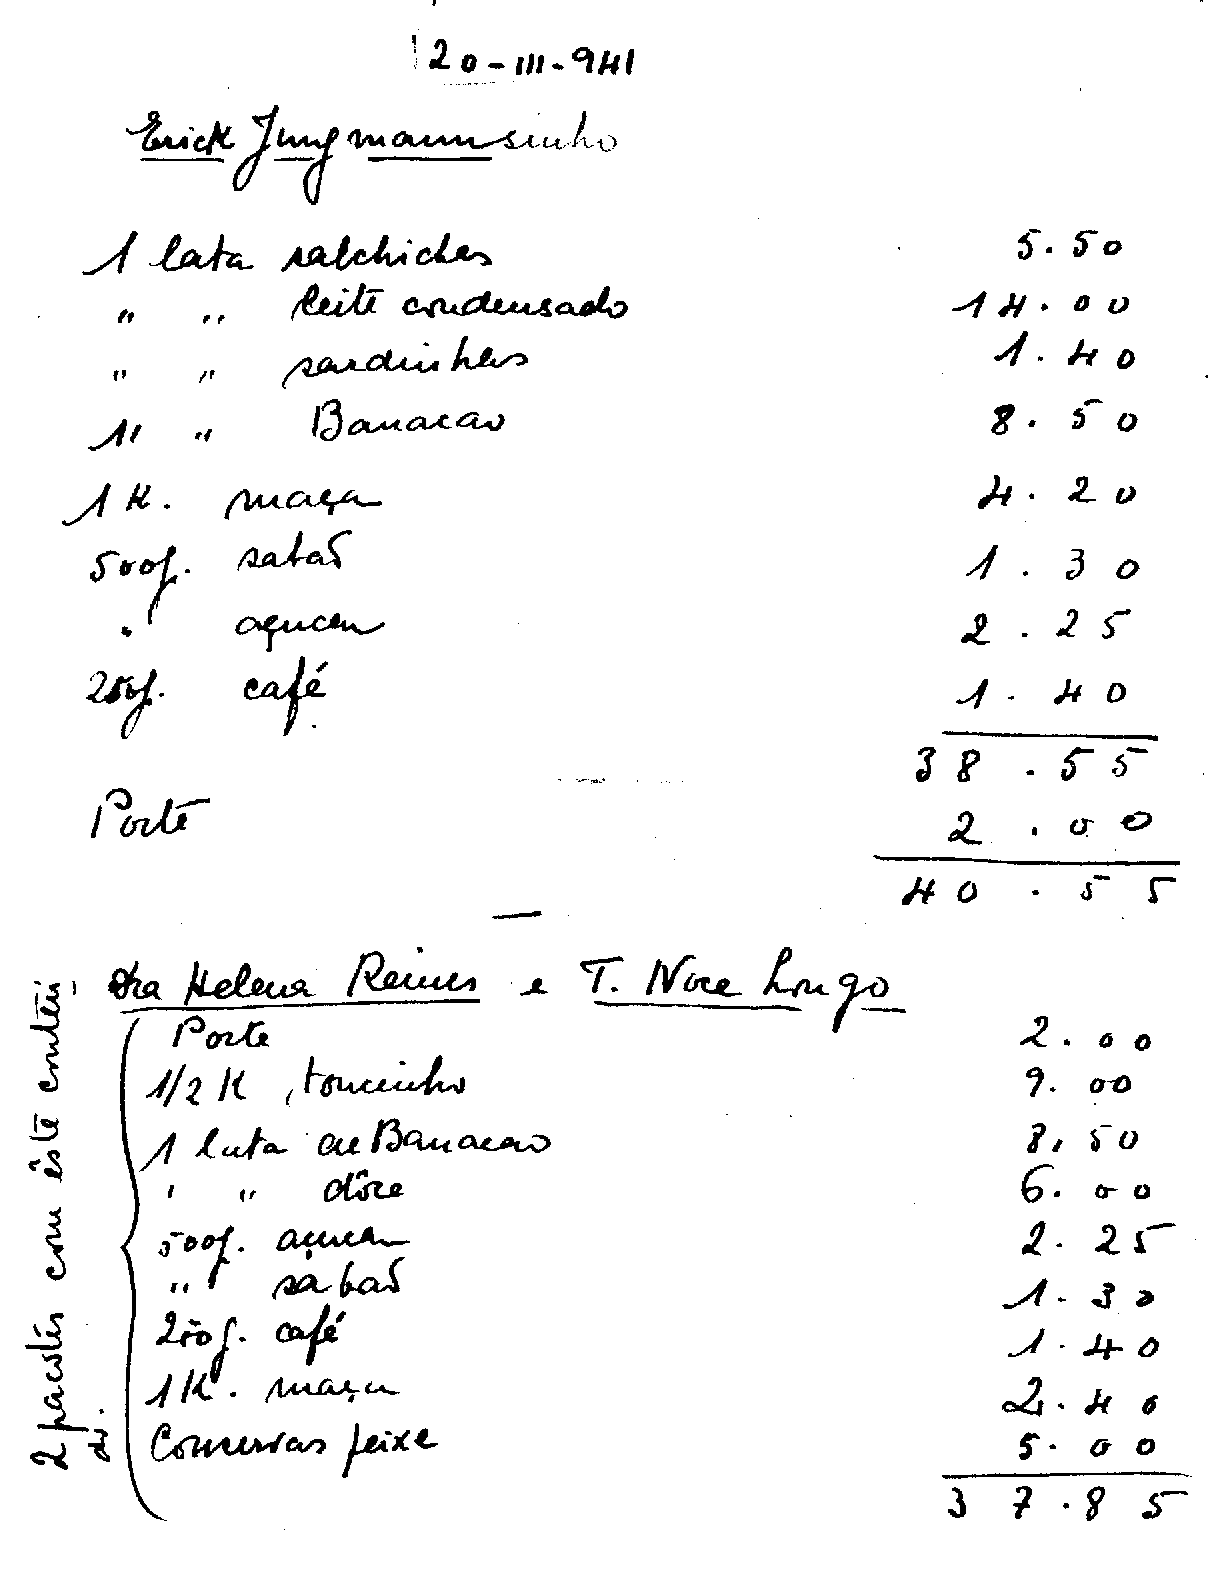 20-III-941
Erick Jungmannsinho
1 lata salchichas 5.50
" " leite condensado 14.00
" " sardinhas 1.40
1" " Banacao 8.50
1 K. maça 4.20
500g. sabaõ 1.30
" açucar 2.25
250g. café 1.40
38.55
Porte 2.00
40.55
Dra Helena Reines e T. Noce Longo
Porte 2.00
1/2 K toucinho 9.00
1 lata de Banacao 8,50
" " dôce 6.00
500g. açucar 2.25
" sabaõ 1.30
250g. café 1.40
1 K. maça 2.40
Conservas peixe 5.00
37.85
2 pacotes com êste conteú-
do.